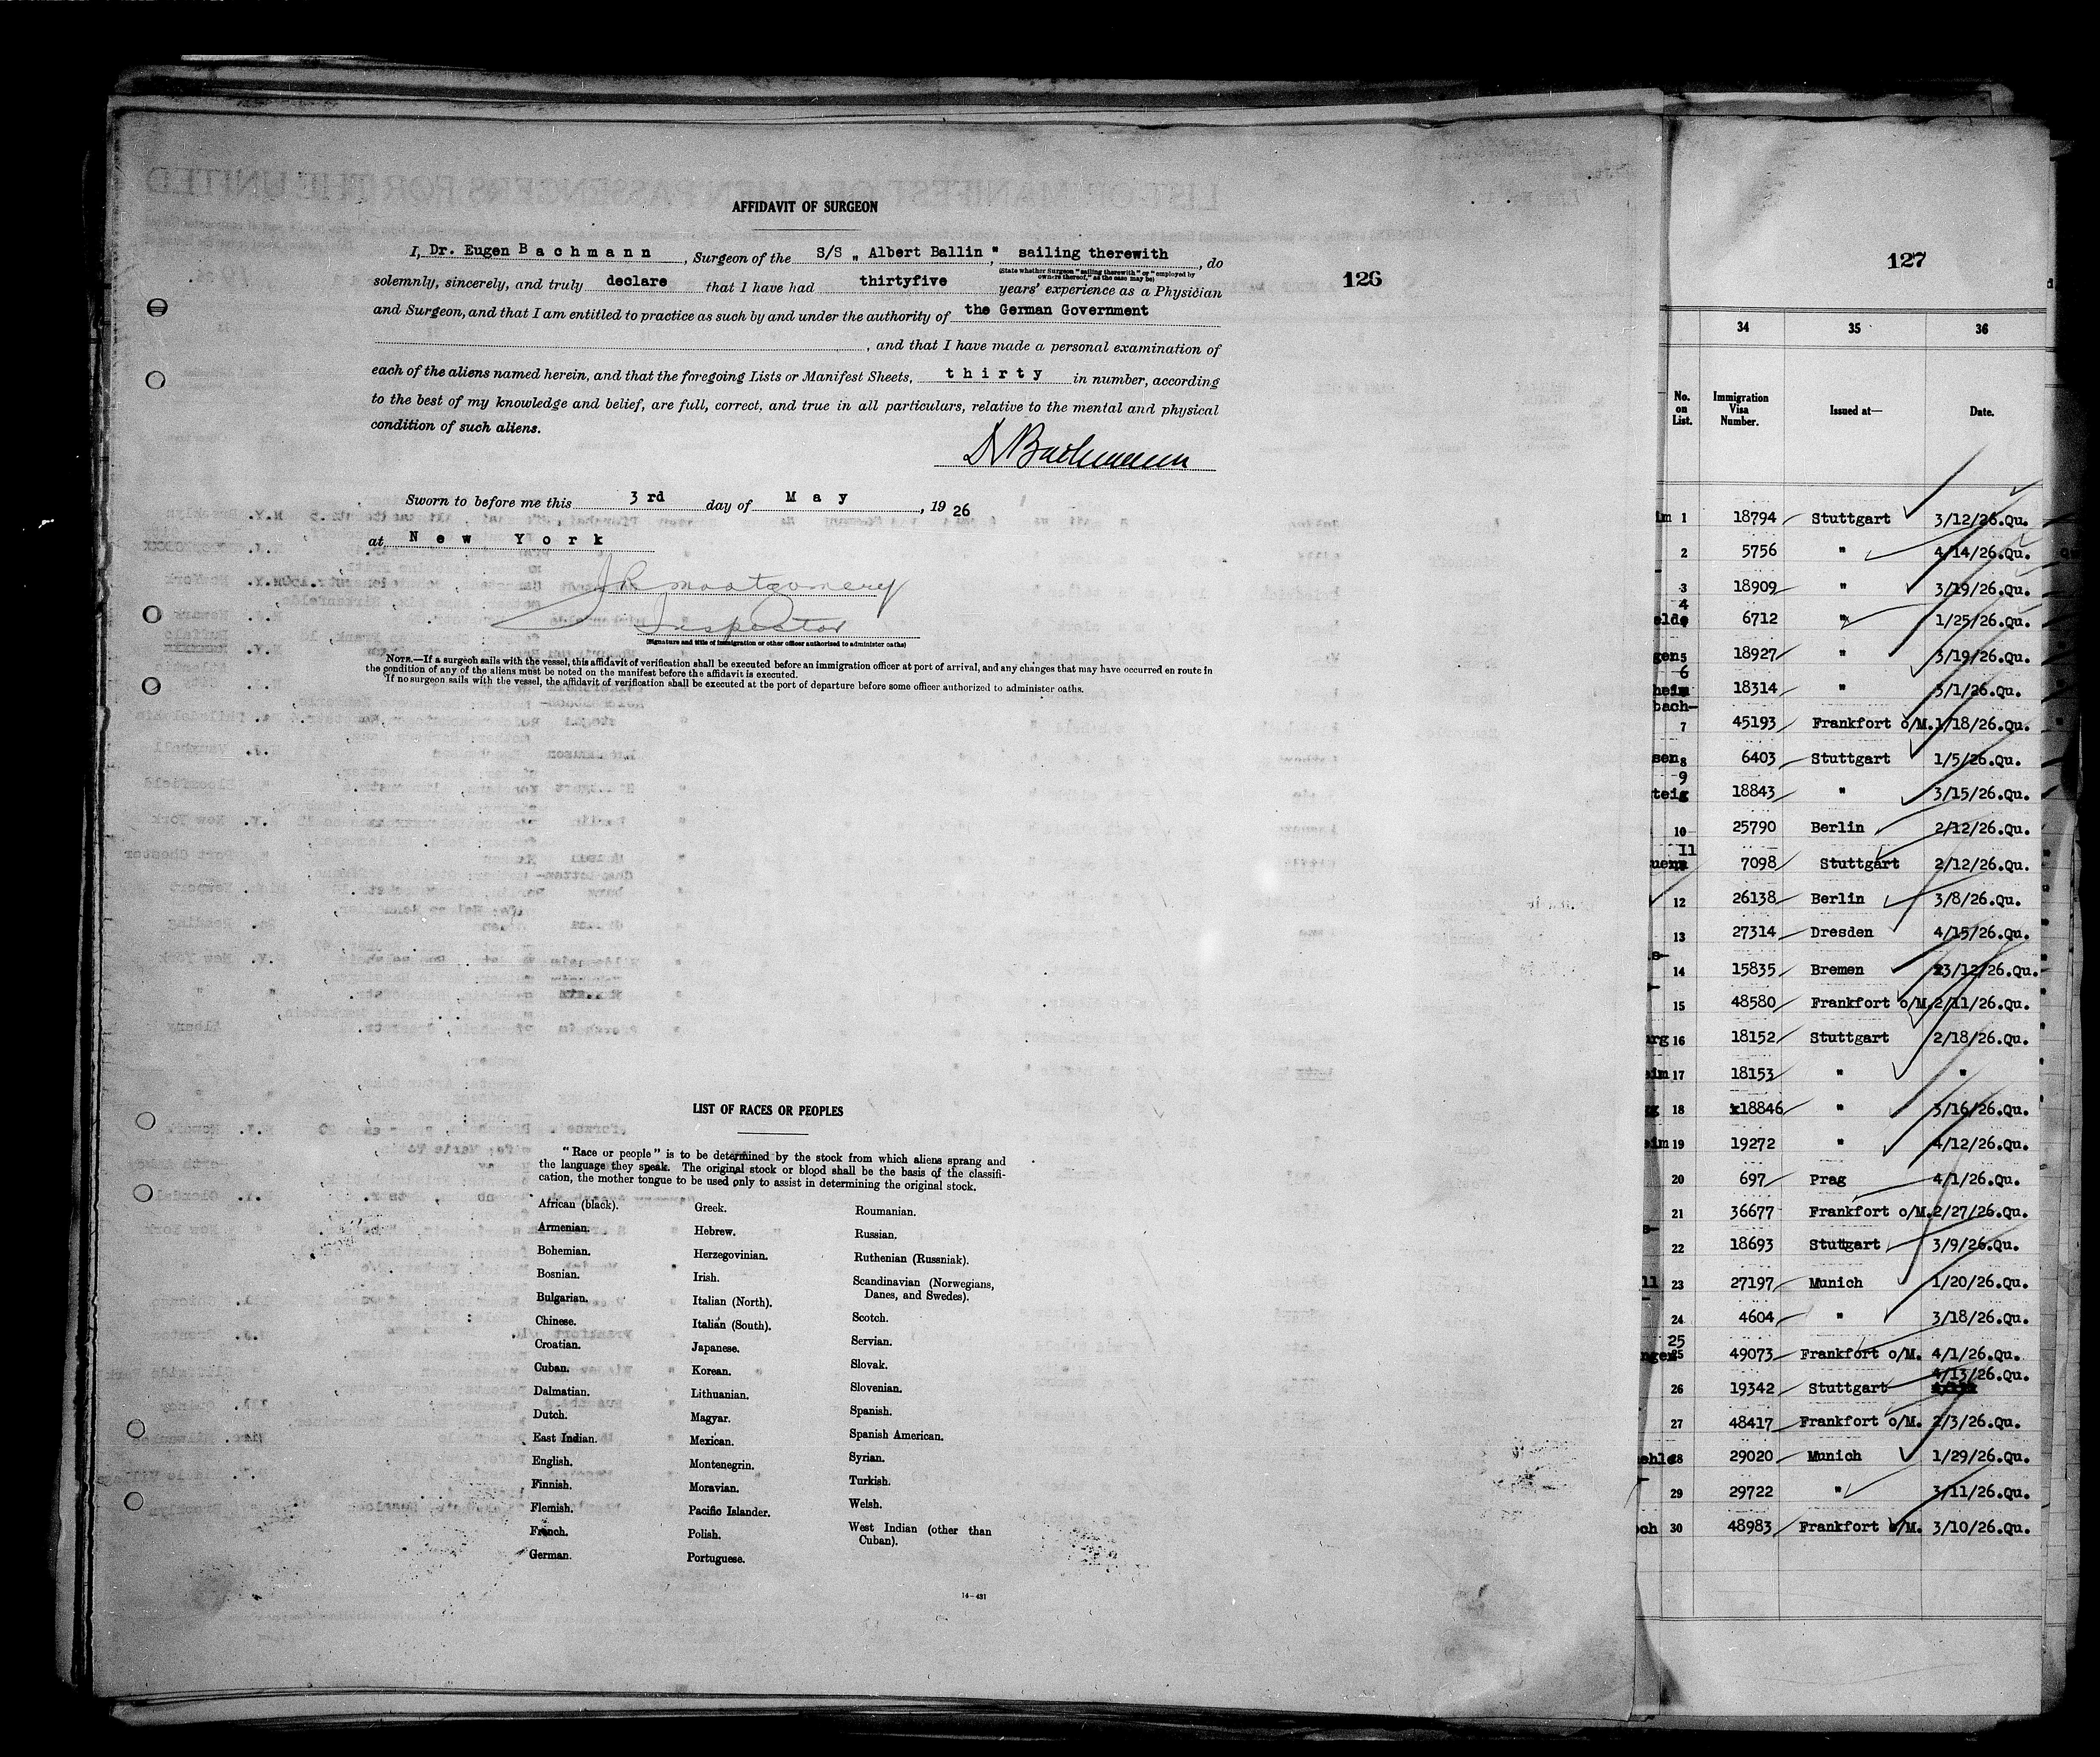 AFFIDAVIT OF SURGEON
I, Dr. Eugen Bachmann, Surgeon of the S/S „ Albert Ballin", sailing therewith, do
(State whether Surgeon "sailing therewith" or "employed by owners thereof," as the case may be)
solemnly, sincerely, and truly declare that I have had thirtyfive years' experience as a Physician
and Surgeon, and that I am entitled to practice as such by and under the authority of the German Government
, and that I have made a personal examination of
each of the aliens named herein, and that the foregoing Lists or Manifest Sheets, thirty in number, according
to the best of my knowledge and belief, are full, correct, and true in all particulars, relative to the mental and physical
condition of such aliens.
Dr Bachmann
Sworn to before me this 3rd day of May, 1926
at New York
Montgomery
Inspector
(Signature and title of immigration or other officer authorized to administer oaths)
NOTE.—If a surgeon sails with the vessel, this affidavit of verification shall be executed before an immigration officer at port of arrival, and any changes that may have occurred en route in
the condition of any of the aliens must be noted on the manifest before the affidavit is executed.
If no surgeon sails with the vessel, the affidavit of verification shall be executed at the port of departure before some officer authorized to administer oaths.
126
LIST OF RACES OR PEOPLES
"Race or people" is to be determined by the stock from which aliens sprang and
the language they speak. The original stock or blood shall be the basis of the classifi-
cation, the mother tongue to be used only to assist in determining the original stock.
African (black).
Armenian.
Bohemian.
Bosnian.
Bulgarian.
Chinese.
Croatian.
Cuban.
Dalmatian.
Dutch.
East Indian.
English.
Finnish.
Flemish.
French.
German.
Greek.
Hebrew.
Herzegovinian.
Irish.
Italian (North).
Italian (South).
Japanese.
Korean.
Lithuanian.
Magyar.
Mexican.
Montenegrin.
Moravian.
Pacific Islander.
Polish.
Portuguese.
Roumanian.
Russian.
Ruthenian (Russniak).
Scandinavian (Norwegians,
Danes, and Swedes).
Scotch.
Servian.
Slovak.
Slovenian.
Spanish.
Spanish American.
Syrian.
Turkish.
Welsh.
West Indian (other than
Cuban).
14—431
127
34 35 36
No. on List. Immigration Visa Number. Issued at— Date.
1 18794 Stuttgart 3/12/26.Qu.
2 5756 " 4/14/26.Qu.
3 18909 " 3/19/26.Qu.
4 6712 " 1/25/26.Qu.
5 18927 " 3/19/26.Qu.
6 18314 " 3/1/26.Qu.
7 45193 Frankfort o/M. 1/18/26.Qu.
8 6403 Stuttgart 1/5/26.Qu.
9 18843 " 3/15/26.Qu.
10 25790 Berlin 2/12/26.Qu.
11 7098 Stuttgart 2/12/26.Qu.
12 26138 Berlin 3/8/26.Qu.
13 27314 Dresden 4/15/26.Qu.
14 15835 Bremen 3/12/26.Qu.
15 48580 Frankfort o/M. 2/11/26.Qu.
16 18152 Stuttgart 2/18/26.Qu.
17 18153 " "
18 18846 " 3/16/26.Qu.
19 19272 " 4/12/26.Qu.
20 697 Prag 4/1/26.Qu.
21 36677 Frankfort o/M. 2/27/26.Qu.
22 18693 Stuttgart 3/9/26.Qu.
23 27197 Munich 1/20/26.Qu.
24 4604 " 3/18/26.Qu.
25 49073 Frankfort o/M. 4/1/26.Qu.
26 19342 Stuttgart 4/13/26.Qu.
27 48417 Frankfort o/M. 2/3/26.Qu.
28 29020 Munich 1/29/26.Qu.
29 29722 " 3/11/26.Qu.
30 48983 Frankfort o/M. 3/10/26.Qu.